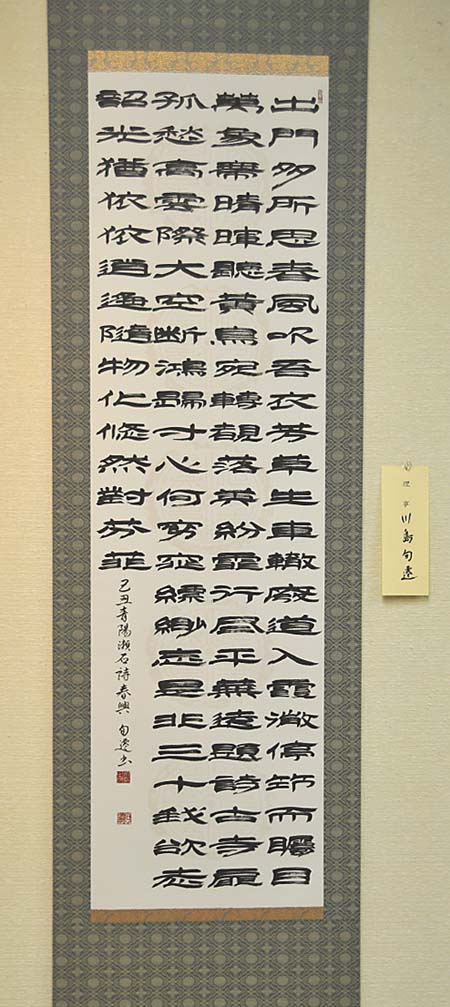 出門多所思春風吹吾衣芳草生車轍廢道入霞微停筇而矚目
萬象帶晴暉聽黃鳥宛轉覩落英紛霏行盡平蕪遠題詩古寺扉
孤愁高雲際大空斷鴻歸寸心何窈窕縹緲忘是非三十我欲老
韶光猶依依逍遙隨物化悠然對芬菲
己丑青陽漱石詩春興 旬書
理事
川島旬